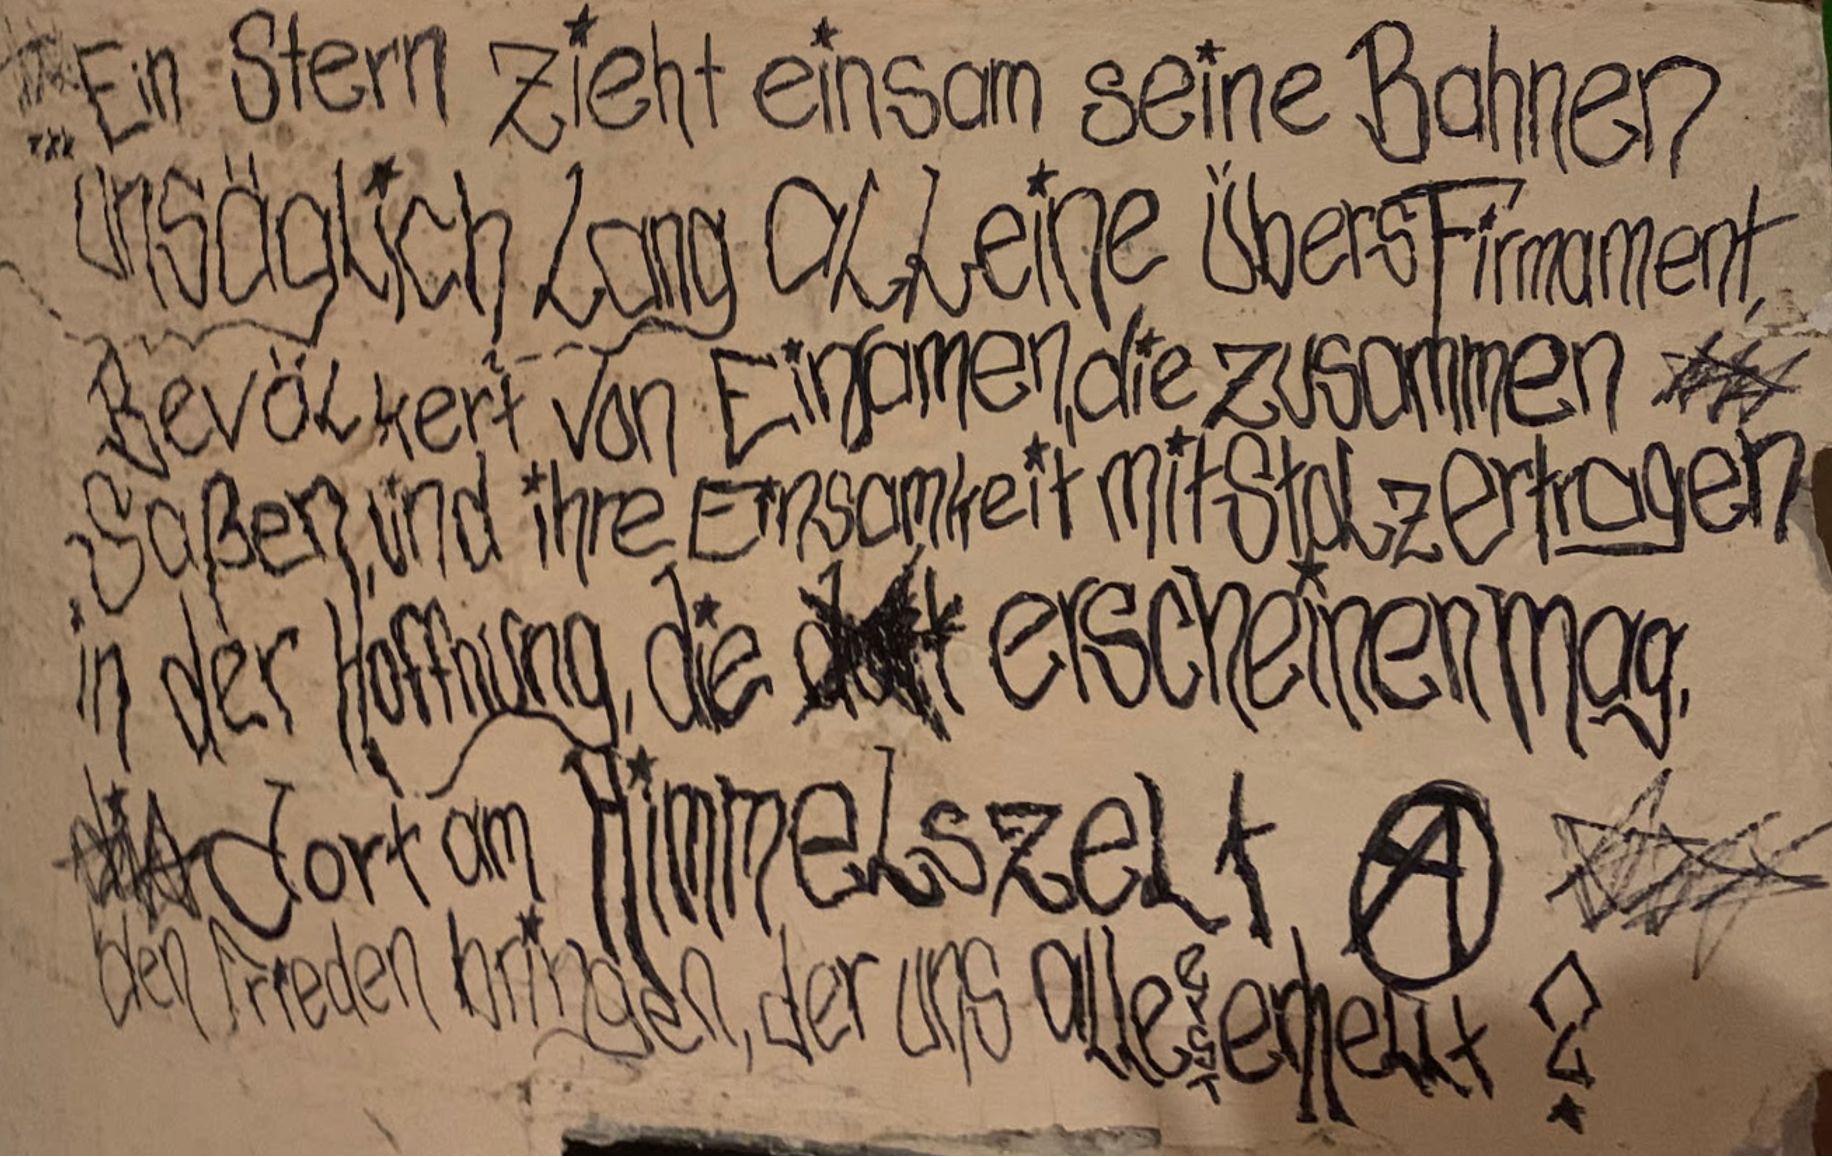 Ein Stern zieht einsam seine Bahnen
unsäglich Lang alleine übers Firmament,
Bevölkert von Einsamen, die zusammen
Saßen, und ihre Einsamkeit mit Stolz ertragen
in der Hoffnung, die erscheinen mag,
dort am Himmelszelt
den Frieden bringen, der uns alle erst erhellt ?